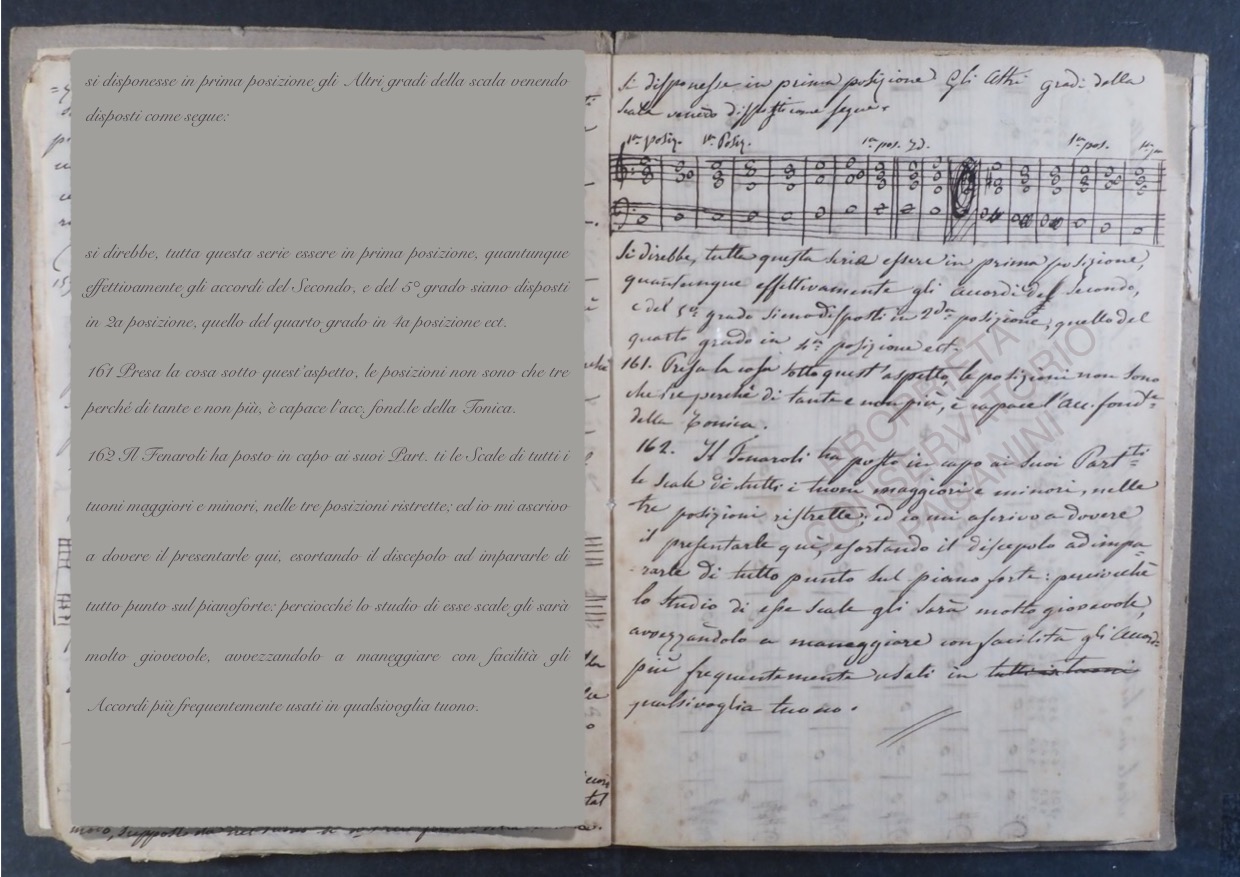 si disponesse in prima posizione gli Altri gradi della scala venendo
disposti come segue:
si direbbe, tutta questa serie essere in prima posizione, quantunque
effettivamente gli accordi del Secondo, e del 5° grado siano disposti
in 2a posizione, quello del quarto grado in 4a posizione ect.
161 Presa la cosa sotto quest'aspetto, le posizioni non sono che tre
perché di tante e non più, è capace l'acc, fond.le della Tonica.
162 Il Fenaroli ha posto in capo ai suoi Part. ti le Scale di tutti i
tuoni maggiori e minori, nelle tre posizioni ristrette; ed io mi ascrivo
a dovere il presentarle qui, esortando il discepolo ad impararle di
tutto punto sul pianoforte: perciocché lo studio di esse scale gli sarà
molto giovevole, avvezzandolo a maneggiare con facilità gli
Accordi più frequentemente usati in qualsivoglia tuono.
si disponesse in prima posizione gli Altri gradi della
scala venendo disposti come segue
1a posiz. 1a Posiz. 1a pos. 1a pos.
Si direbbe, tutta questa serie essere in prima posizione,
quantunque effettivamente gli accordi del secondo,
e del 5° grado sieno disposti in 2da posizione, quello del
quarto grado in 4a posizione ect.
161. Presa la cosa sotto quest'aspetto, le posizioni non sono
che tre perché di tante e non più, è capace l'acc. fond.le
della Tonica.
162. Il Fenaroli ha posto in capo ai suoi Part.ti
le scale di tutti i tuoni maggiori e minori, nelle
tre posizioni ristrette; ed io mi ascrivo a dovere
il presentarle qui, esortando il discepolo ad impa=
rarle di tutto punto sul piano forte: perciocché
lo studio di esse scale gli sarà molto giovevole,
avvezzandolo a maneggiare con facilità gli Accordi
più frequentemente usati in tutti i tuoni
qualsivoglia tuono.
PROPRIETA
CONSERVATORIO
PAGANINI